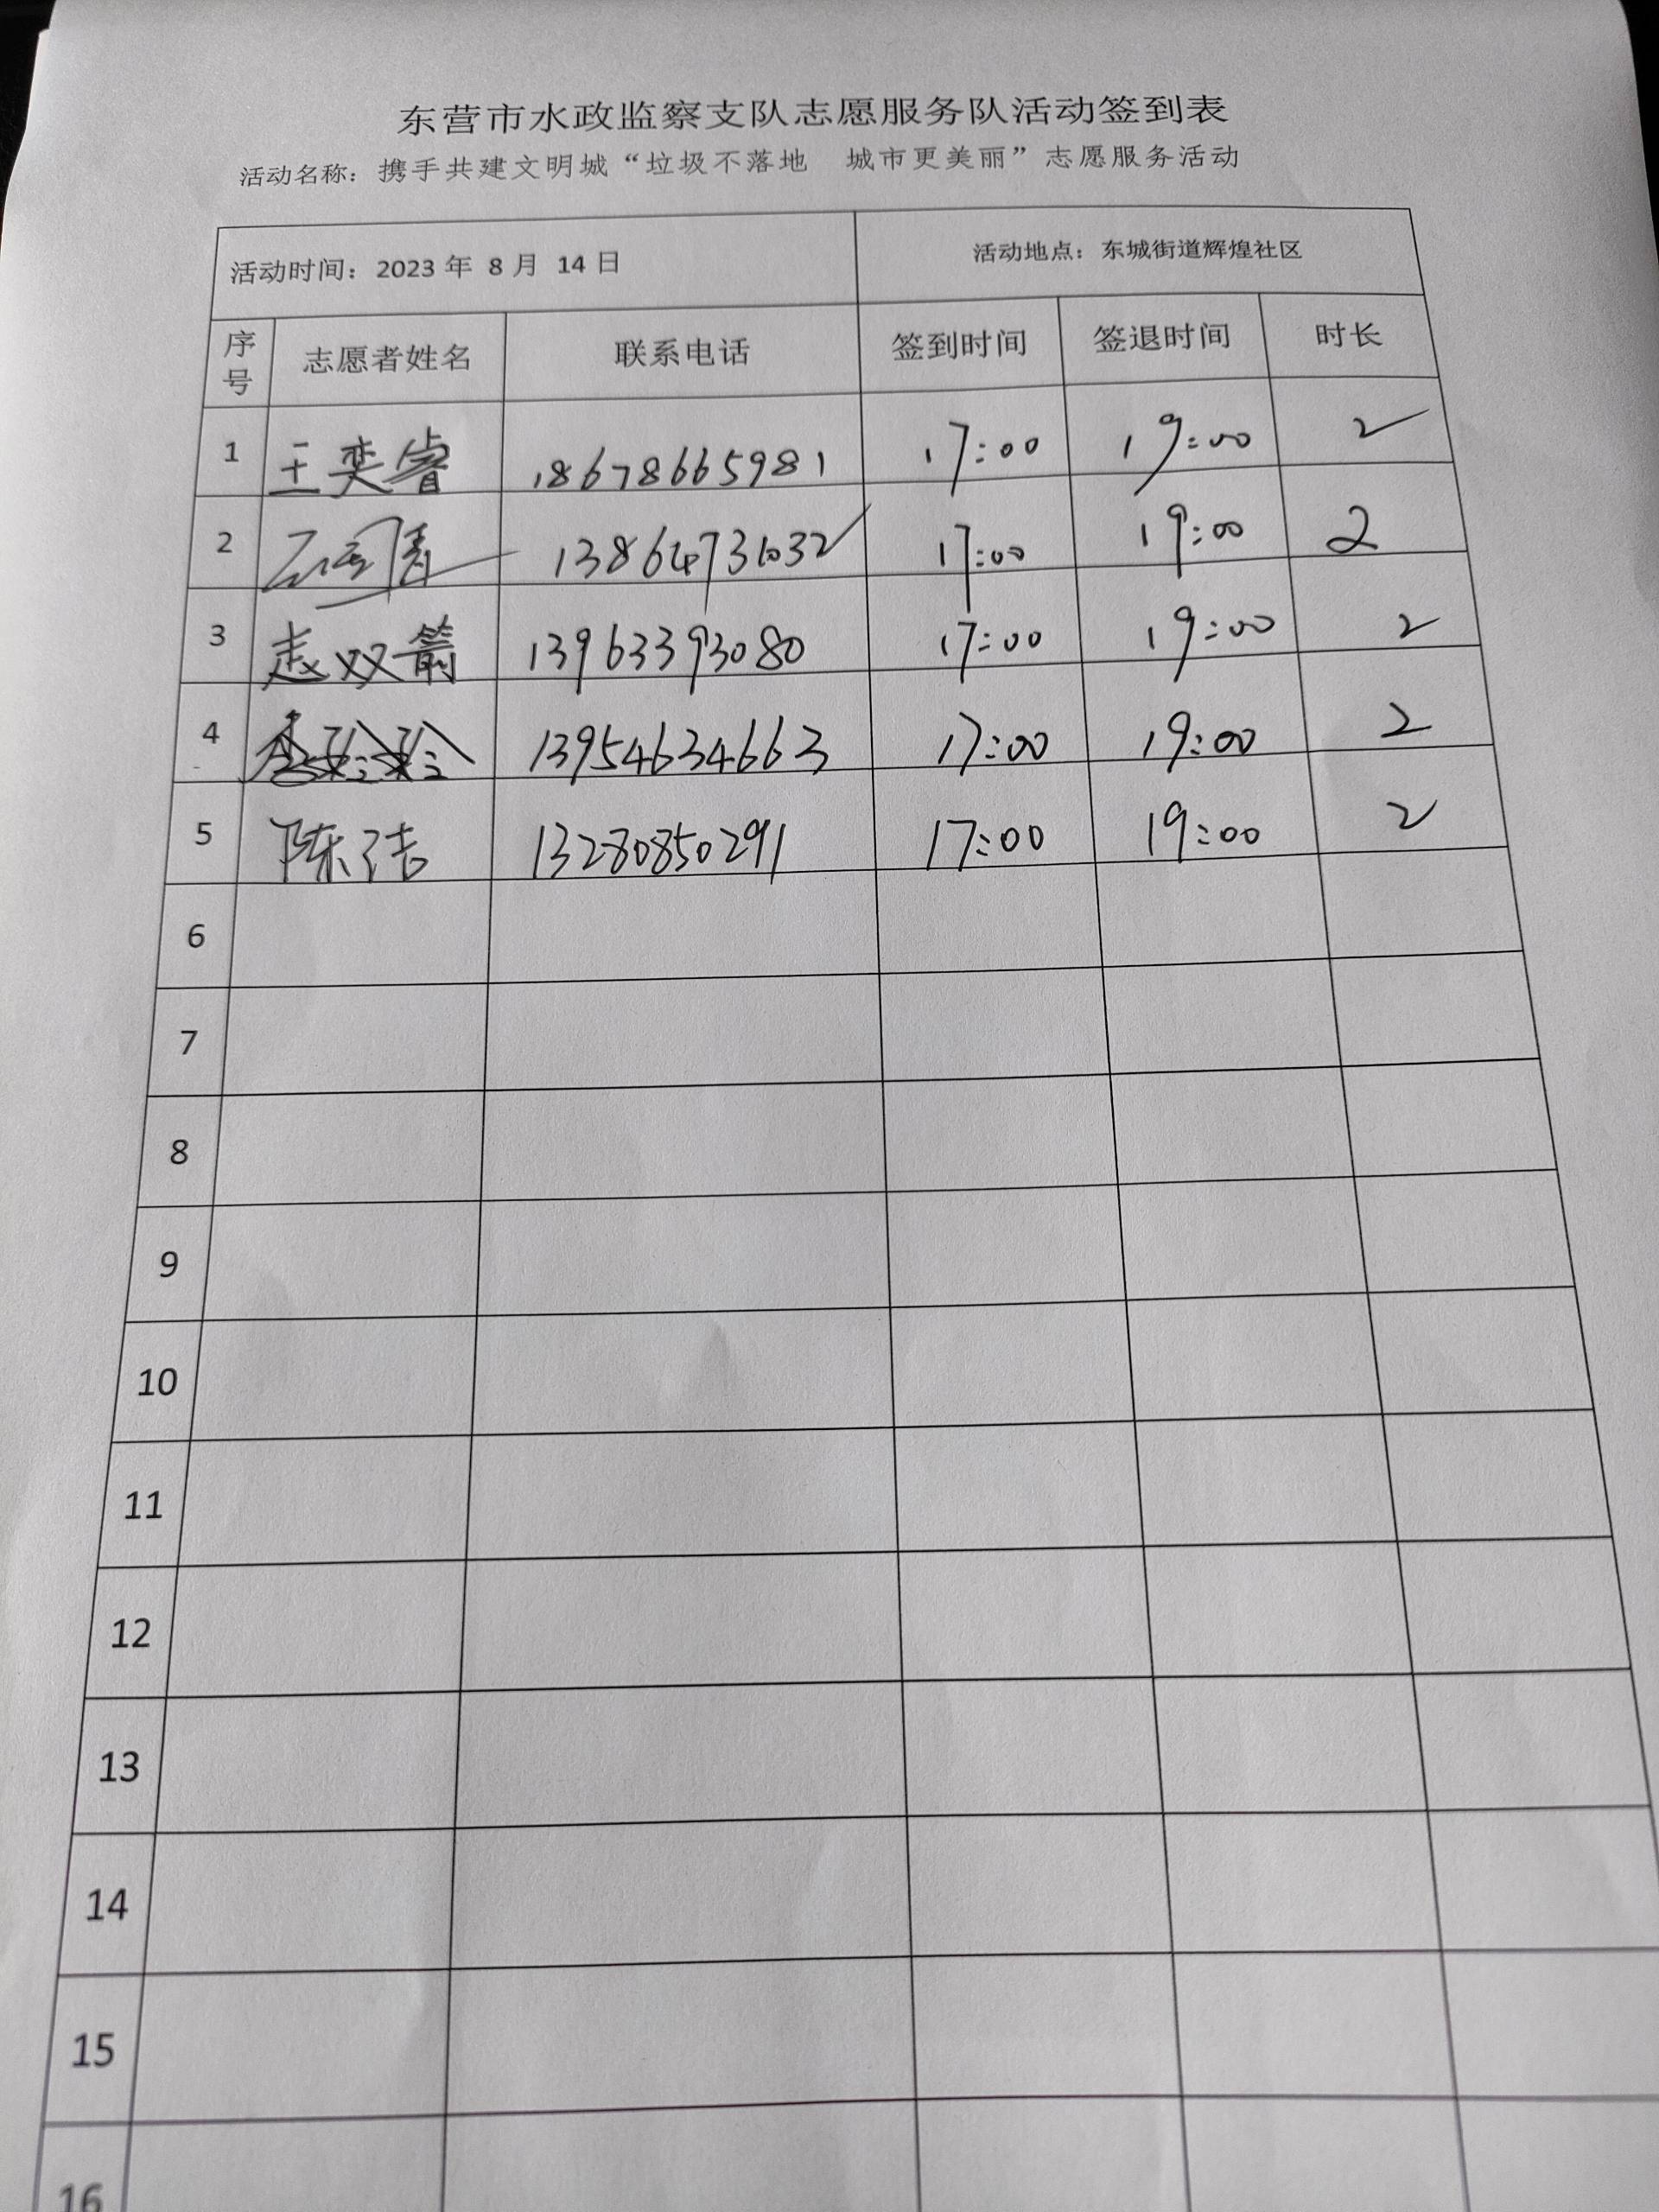 东营市水政监察支队志愿服务队活动签到表
活动名称：携手共建文明城“垃圾不落地 城市更美丽”志愿服务活动
活动时间：2023 年 8 月 14 日 活动地点：东城街道辉煌社区
序号 志愿者姓名 联系电话 签到时间 签退时间 时长
1 王奕睿 18678665981 17:00 19:00 2
2 17:00 19:00 2
3 赵双箭 13963393080 17:00 19:00 2
4 13954634663 17:00 19:00 2
5 陈洁 13280850291 17:00 19:00 2
6
7
8
9
10
11
12
13
14
15
16